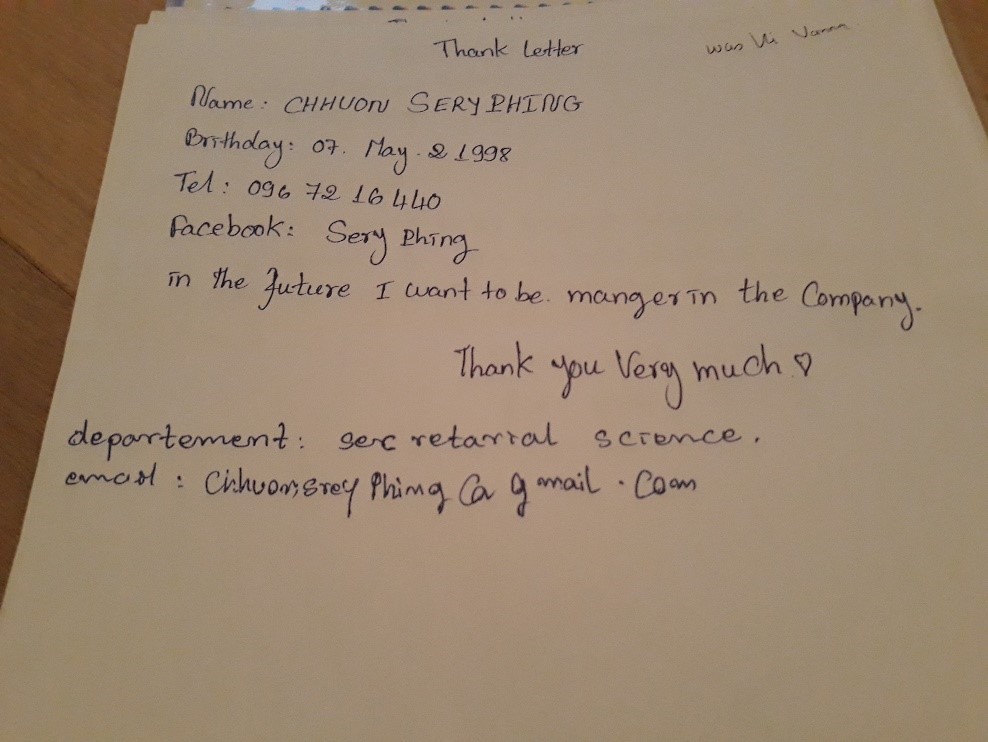 Thank Letter
was Vi Vanna
Name: CHHUON SERYPHING
Brithday: 07. May. 2 1998
Tel: 096 72 16 440
Facebook: Sery Phing
in the future I want to be. manger in the Company.
Thank you Very much ♡
departement: secretarial science.
email: Chhuon,Srey Phing @ gmail . Com